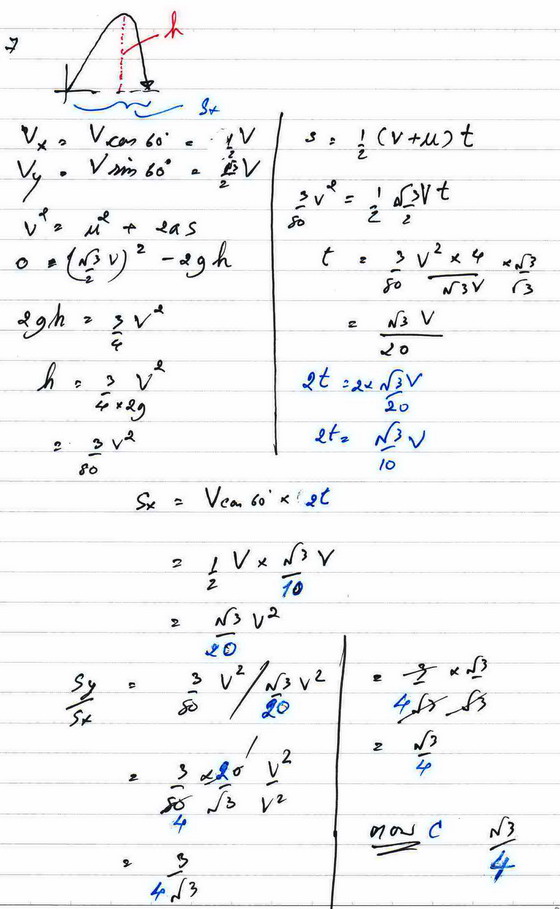 7
h
Sx
Vx = V cos 60° = 1/2 V
Vy = V sin 60° = √3/2 V
v² = u² + 2as
0 = (√3/2 V)² - 2gh
2gh = 3/4 V²
h = 3/(4×2g) V²
= 3/80 V²
s = 1/2 (v+u) t
3/80 V² = 1/2 √3/2 V t
t = 3/80 V² × 4/√3V × √3/√3
= √3 V/20
2t = 2× √3V/20
2t = √3 V/10
Sx = V cos 60° × 2t
= 1/2 V × √3/10 V
= √3/20 V²
Sy/Sx = 3/80 V² / √3/20 V²
= 3/80 × 20/√3 V²/V²
4
= 3/4√3
= 3/4√3 × √3/√3
= √3/4
C √3/4